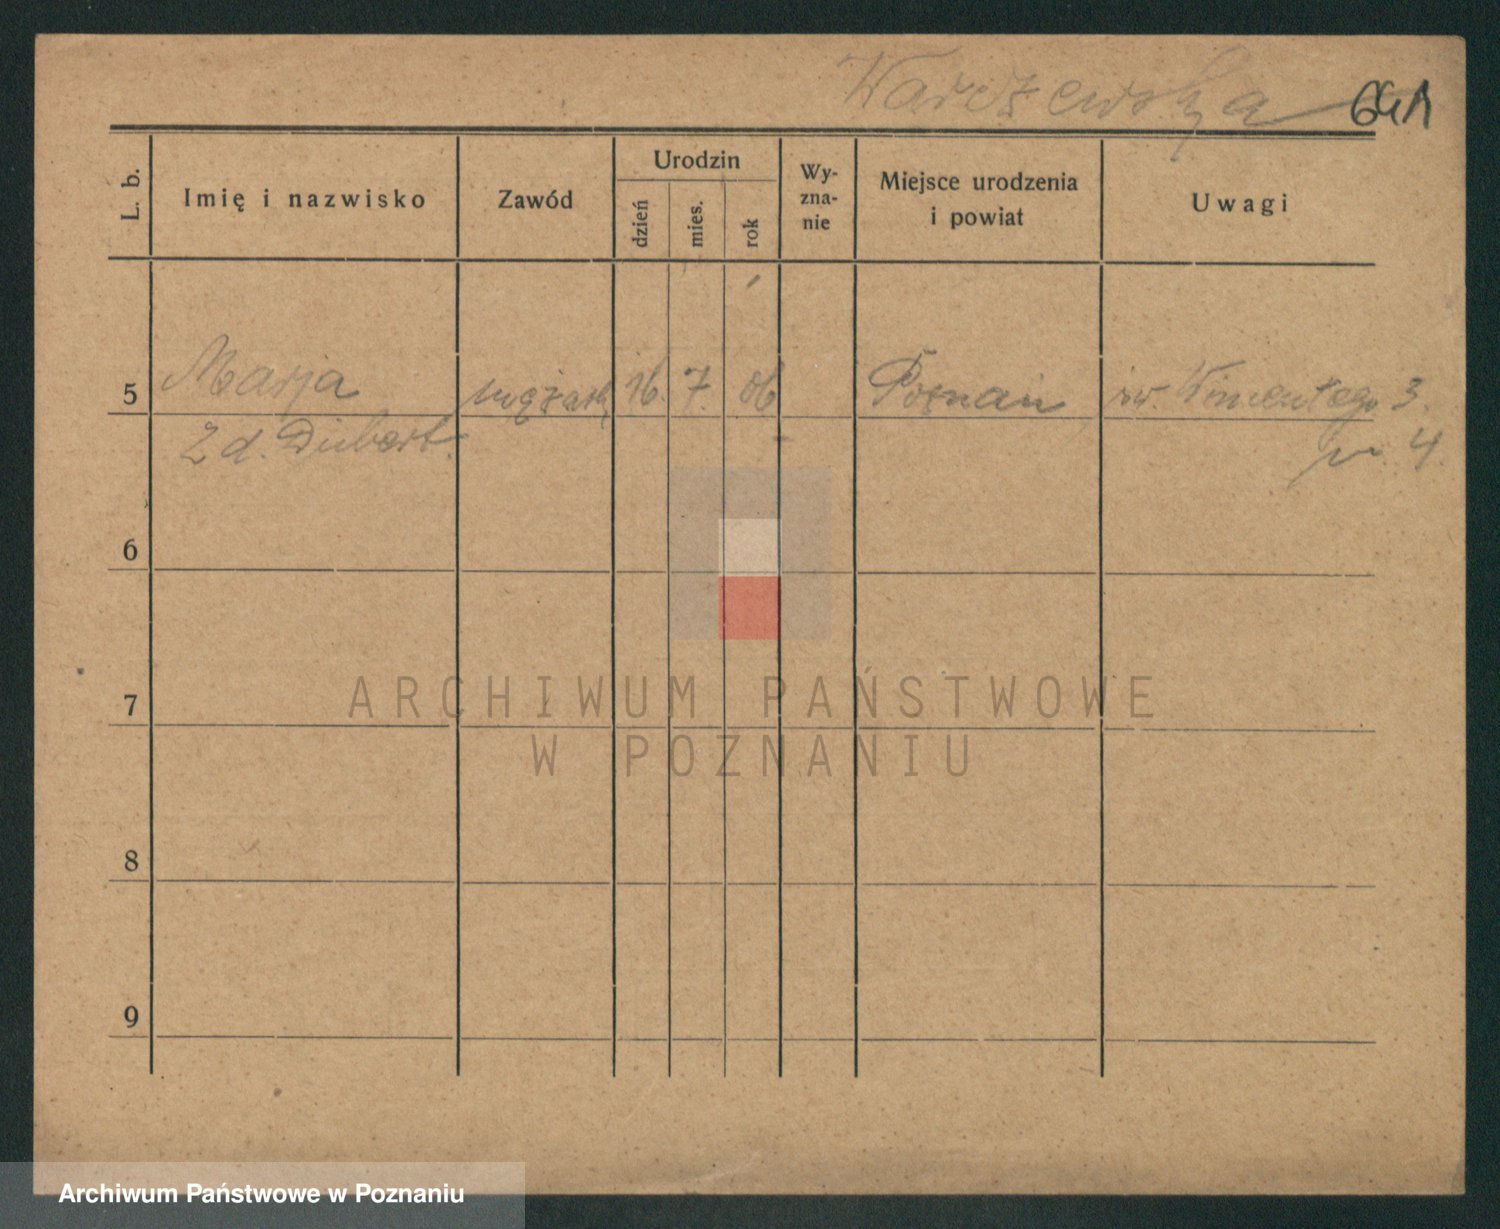 Warczewska 641
L. b.
Imię i nazwisko
Zawód
Urodzin
dzień
mies.
rok
Wy-
zna-
nie
Miejsce urodzenia
i powiat
Uwagi
5 Marja mężatk. 16. 7. 06 Poznań św. Wincentego 3.
z d. Dubert. 4.
6
7
ARCHIWUM PAŃSTWOWE
W POZNANIU
8
9
Archiwum Państwowe w Poznaniu